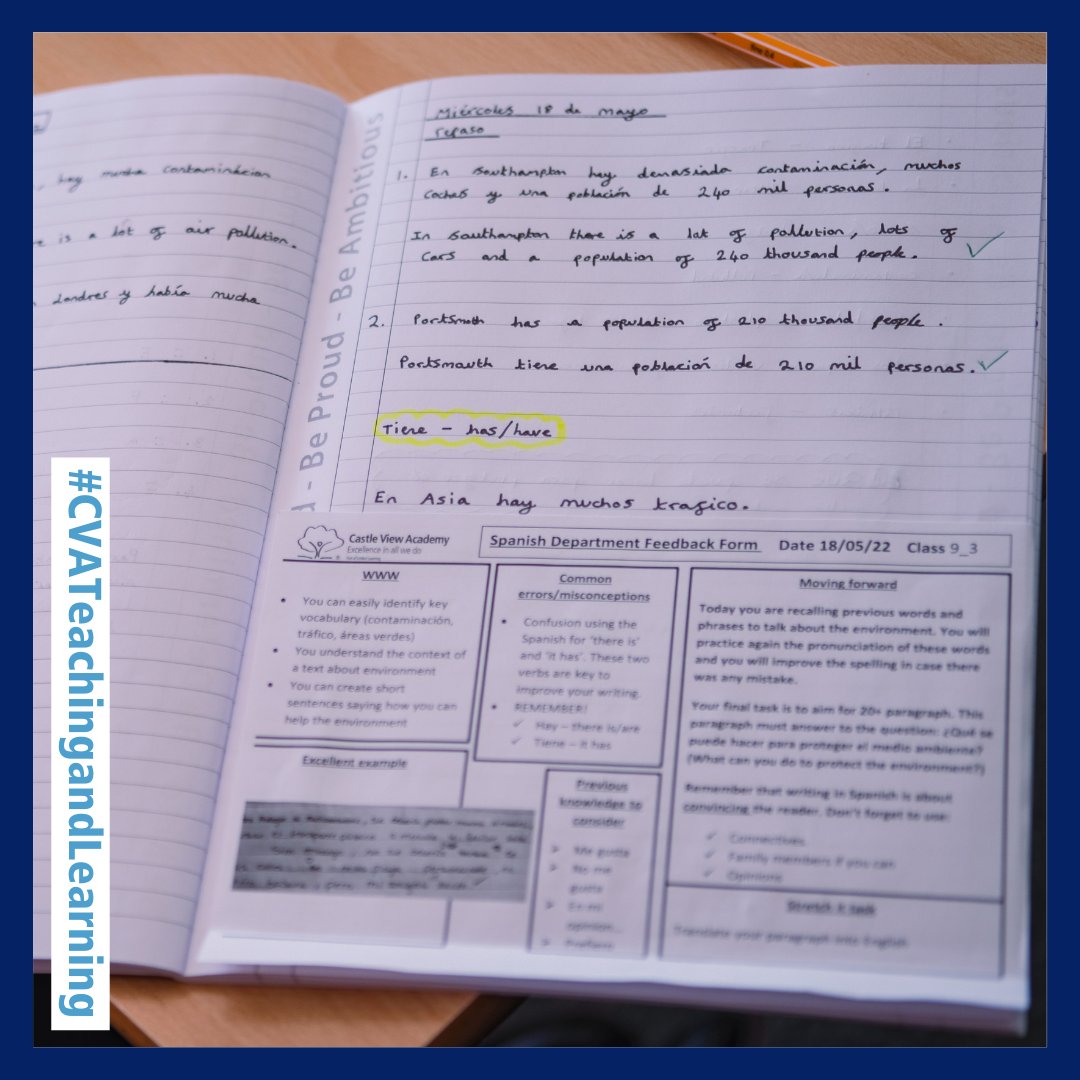 hay mucha contaminácion
is a lot of air pollution.
Londres y había mucha
d - Be Proud - Be Ambitious
Miércoles 18 de mayo
repaso
1. En Southampton hay demasiada contaminación, muchos
coches y una población de 240 mil personas.
In Southampton there is a lot of pollution, lots of
cars and a population of 240 thousand people.
2. Portsmoth has a population of 210 thousand people.
Portsmouth tiene una población de 210 mil personas.
Tiene - has/have
En Asia hay muchos trafico.
Castle View Academy
Excellence in all we do
Spanish Department Feedback Form Date 18/05/22 Class 9_3
WWW
• You can easily identify key
vocabulary (contaminación,
tráfico, áreas verdes)
• You understand the context of
a text about environment
• You can create short
sentences saying how you can
help the environment
Common
errors/misconceptions
• Confusion using the
Spanish for 'there is'
and 'it has'. These two
verbs are key to
improve your writing.
• REMEMBER!
✓ Hay – there is/are
✓ Tiene – it has
Moving forward
Today you are recalling previous words and
phrases to talk about the environment. You will
practice again the pronunciation of these words
and you will improve the spelling in case there
was any mistake.
Your final task is to aim for 20+ paragraph. This
paragraph must answer to the question: ¿Qué se
puede hacer para proteger el medio ambiente?
(What can you do to protect the environment?)
Remember that writing in Spanish is about
convincing the reader. Don't forget to use:
✓ Connectives
✓ Family members if you can
✓ Opinions
Excellent example
Previous
knowledge to
consider
➢ Me gusta
➢ No me
gusta
➢ En mi
opinion...
➢ Prefiero
Stretch it task
Translate your paragraph into English
#CVATeachingandLearning